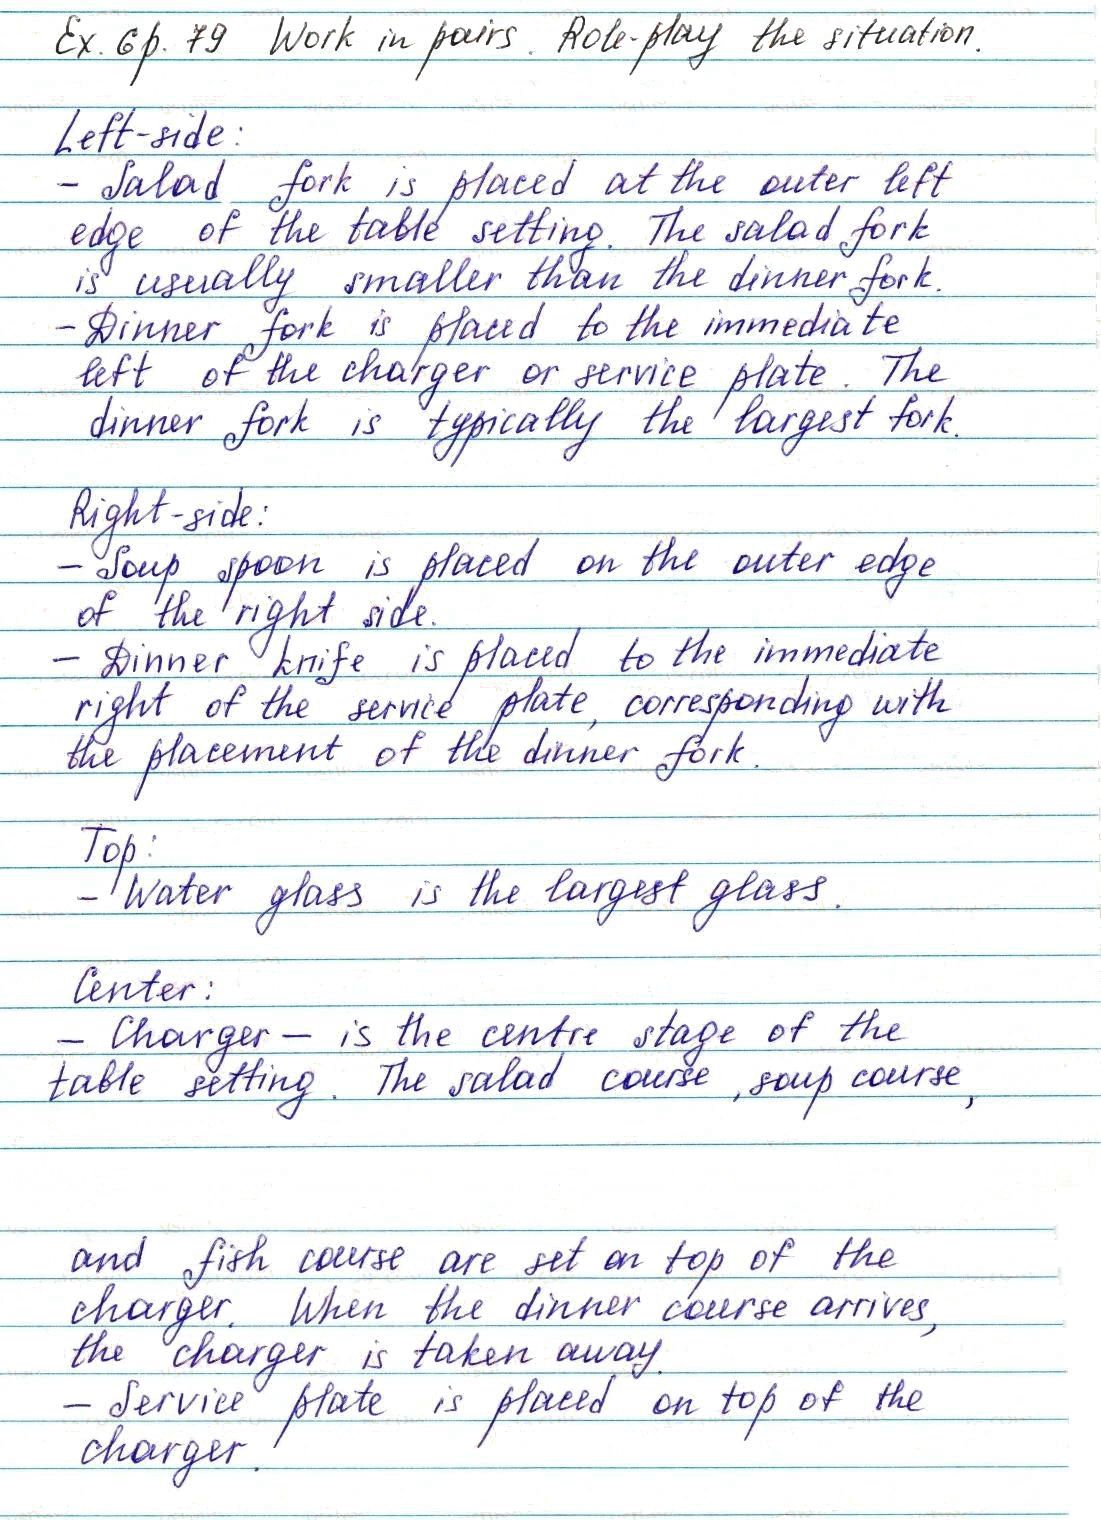 Ex. 6 p. 79 Work in pairs. Role-play the situation.
Left-side:
- Salad fork is placed at the outer left
edge of the table setting. The salad fork
is usually smaller than the dinner fork.
- Dinner fork is placed to the immediate
left of the charger or service plate. The
dinner fork is typically the largest fork.
Right-side:
- Soup spoon is placed on the outer edge
of the right side.
- Dinner knife is placed to the immediate
right of the service plate, corresponding with
the placement of the dinner fork.
Top:
- Water glass is the largest glass.
Center:
- Charger - is the centre stage of the
table setting. The salad course, soup course,
and fish course are set on top of the
charger. When the dinner course arrives,
the charger is taken away.
- Service plate is placed on top of the
charger.